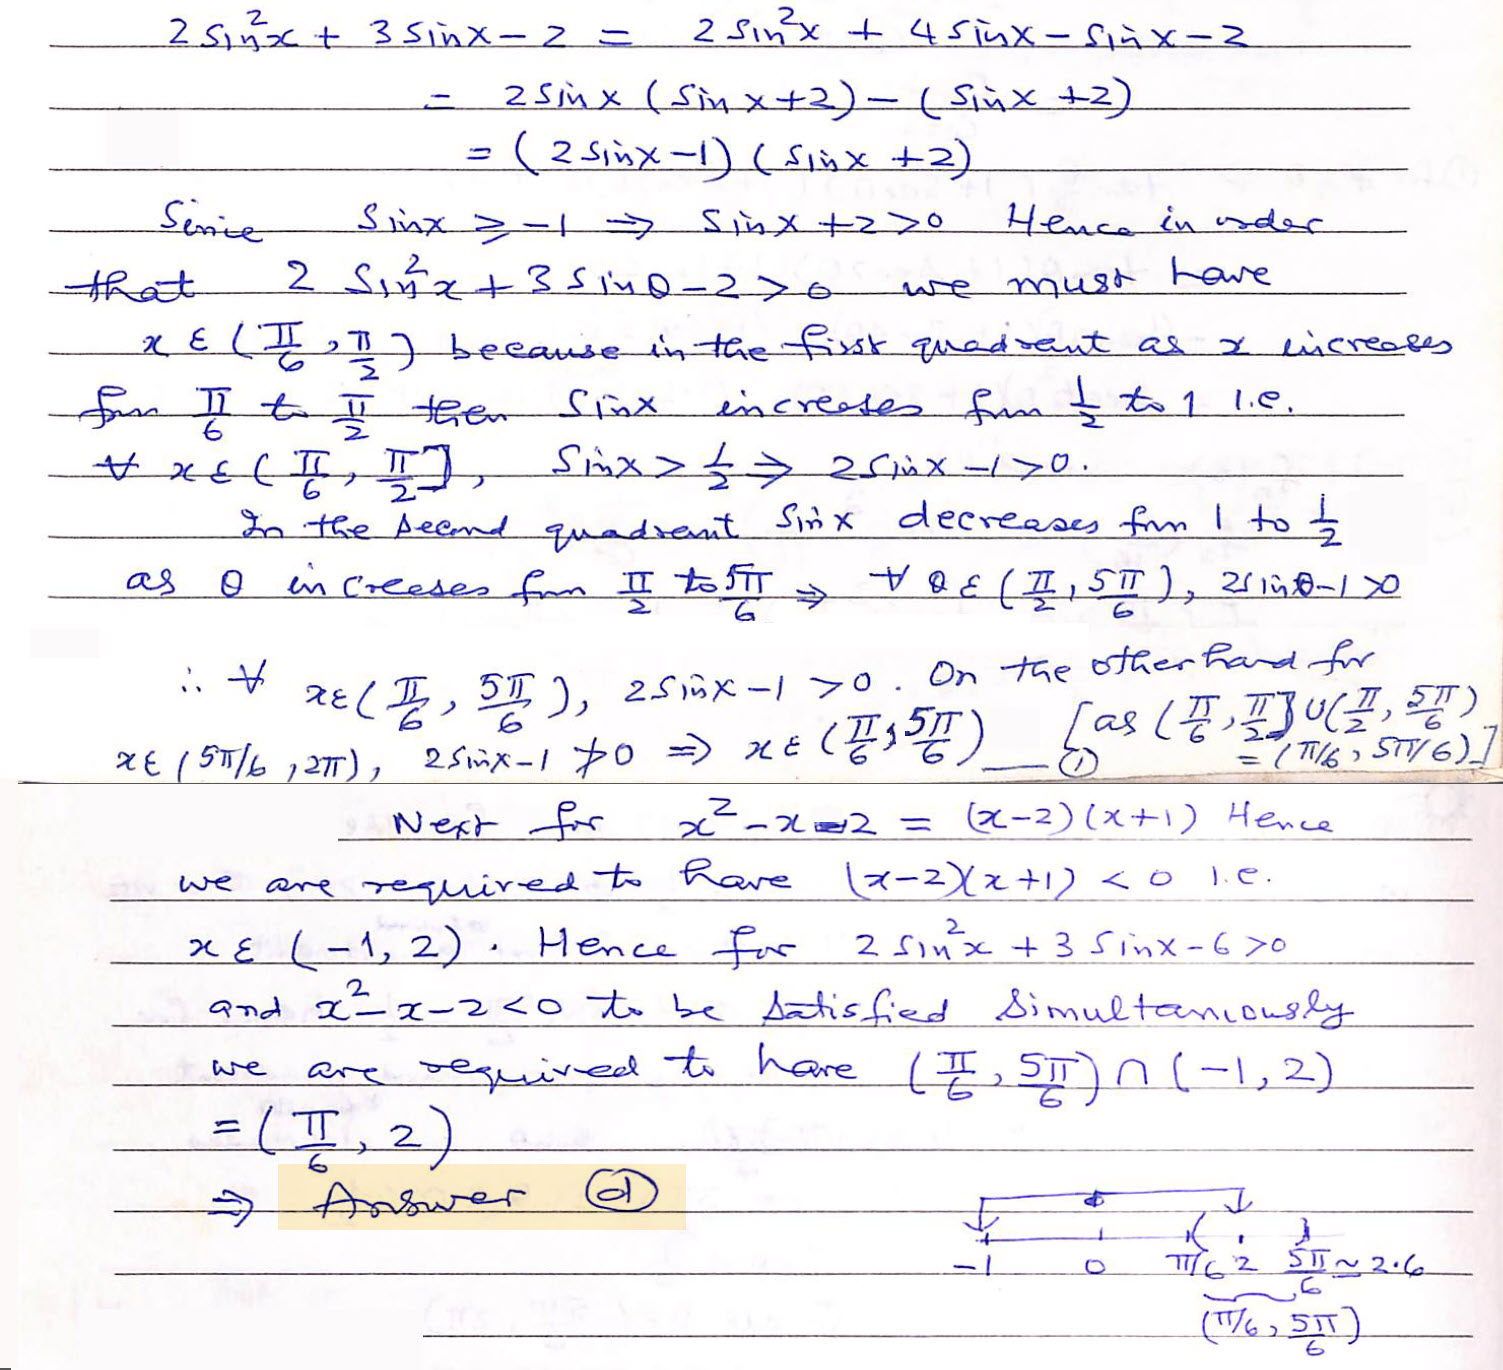 2 sin²x + 3 sinx − 2 = 2 sin²x + 4 sinx − sinx − 2
= 2 sin x (sin x + 2) − (sinx + 2)
= (2 sinx − 1) (sinx + 2)
Since sinx ≥ −1 ⇒ sinx + 2 > 0 Hence in order
that 2 sin²x + 3 sinθ − 2 > 0 we must have
x ε (π/6, π/2) because in the first quadrant as x increases
from π/6 to π/2 then sinx increases from 1/2 to 1 i.e.
∀ x ε (π/6, π/2], sinx > 1/2 ⇒ 2 sinx − 1 > 0.
In the second quadrant sinx decreases from 1 to 1/2
as θ increases from π/2 to 5π/6 ⇒ ∀ θ ε (π/2, 5π/6), 2sinθ−1 > 0
∴ ∀ xε(π/6, 5π/6), 2 sinx − 1 > 0. On the other hand for
x ε (5π/6, 2π), 2 sinx − 1 ≯ 0 ⇒ x ε (π/6, 5π/6) — ① [as (π/6, π/2] ∪ (π/2, 5π/6)
= (π/6, 5π/6)]
Next for x² − x − 2 = (x−2)(x+1) Hence
we are required to have (x−2)(x+1) < 0 i.e.
x ε (−1, 2). Hence for 2 sin²x + 3 sinx − 6 > 0
and x² − x − 2 < 0 to be satisfied simultaniously
we are required to have (π/6, 5π/6) ∩ (−1, 2)
= (π/6, 2)
⇒ Answer (d)
−1 0 π/6 2 5π/6 ≃ 2.6
(π/6, 5π/6)